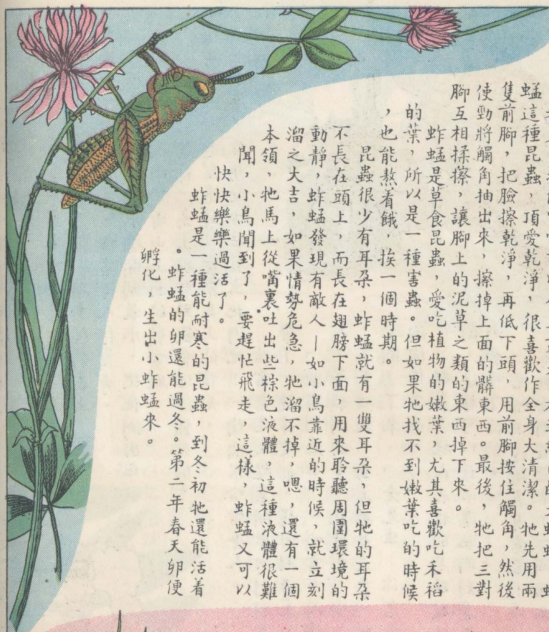 蜢這種昆蟲，頂愛乾淨，很喜歡作全身大清潔。牠先用兩
隻前腳，把臉擦乾淨，再低下頭，用前腳按住觸角，然後
使勁將觸角抽出來，擦掉上面的髒東西。最後，牠把三對
腳互相揉擦，讓腳上的泥草之類的東西掉下來。
蚱蜢是草食昆蟲，愛吃植物的嫩葉，尤其喜歡吃禾稻
的葉，所以是一種害蟲。但如果牠找不到嫩葉吃的時候
，也能熬着餓，挨一個時期。
昆蟲很少有耳朵，蚱蜢就有一雙耳朵，但牠的耳朵
不長在頭上，而長在翅膀下面，用來聆聽周圍環境的
動靜，蚱蜢發現有敵人—如小鳥靠近的時候，就立刻
溜之大吉，如果情勢危急，牠溜不掉，嗯，還有一個
本領，牠馬上從嘴裏吐出些棕色液體，這種液體很難
聞，小鳥聞到了，要趕忙飛走，這樣，蚱蜢又可以
快快樂樂過活了。
蚱蜢是一種能耐寒的昆蟲，到冬初牠還能活着
。蚱蜢的卵還能過冬。第二年春天卵便
孵化，生出小蚱蜢來。